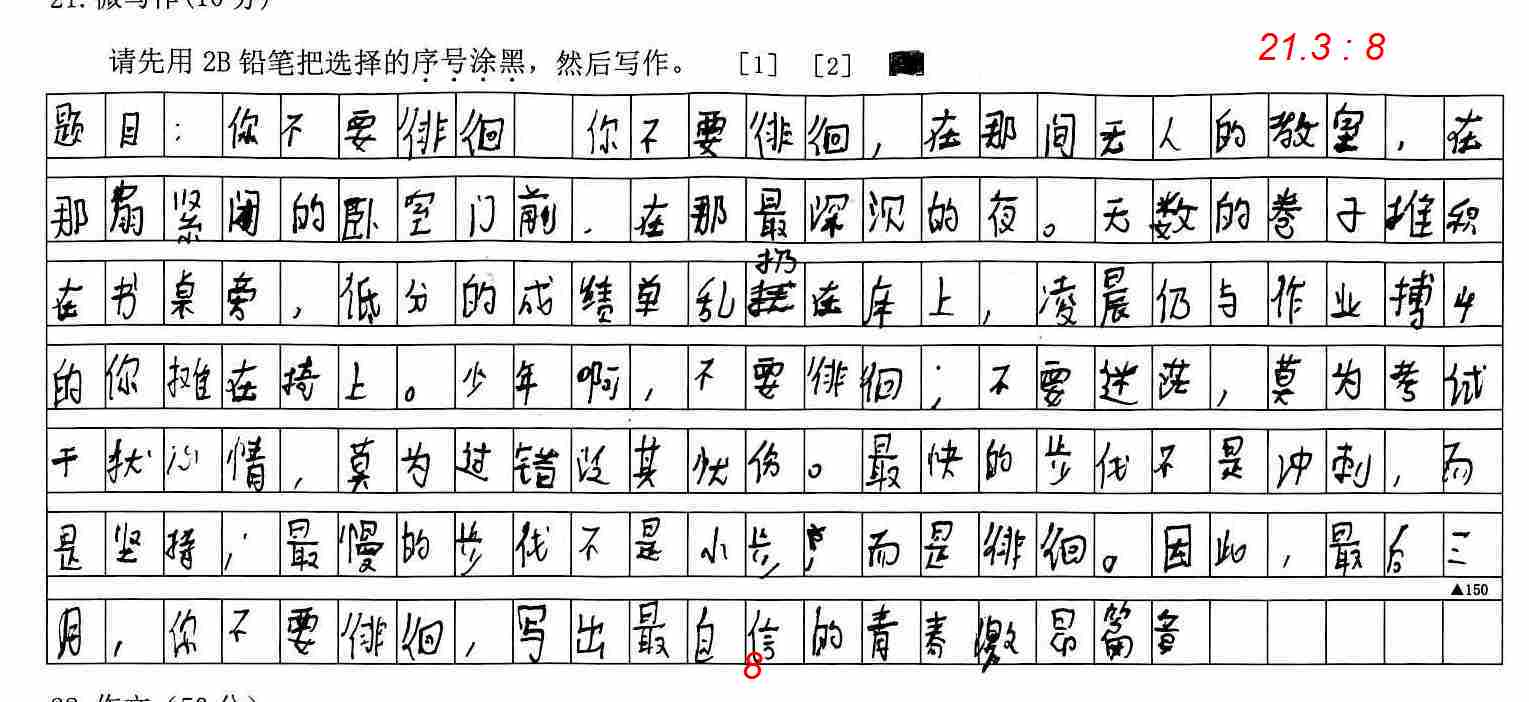 21. 微写作(10 分)
请先用 2B 铅笔把选择的序号涂黑，然后写作。 [1] [2]
21.3 : 8
题目：你不要徘徊 你不要徘徊，在那间无人的教室，在
那扇紧闭的卧室门前，在那最深沉的夜。无数的卷子堆积
在书桌旁，低分的成绩单乱扔在床上，凌晨仍与作业搏斗
的你摊在椅上。少年啊，不要徘徊；不要迷茫，莫为考试
干扰心情，莫为过错没其忧伤。最快的步伐不是冲刺，而
是坚持；最慢的步伐不是小步，而是徘徊。因此，最后三
▲150
月，你不要徘徊，写出最自信的青春激昂篇章
8